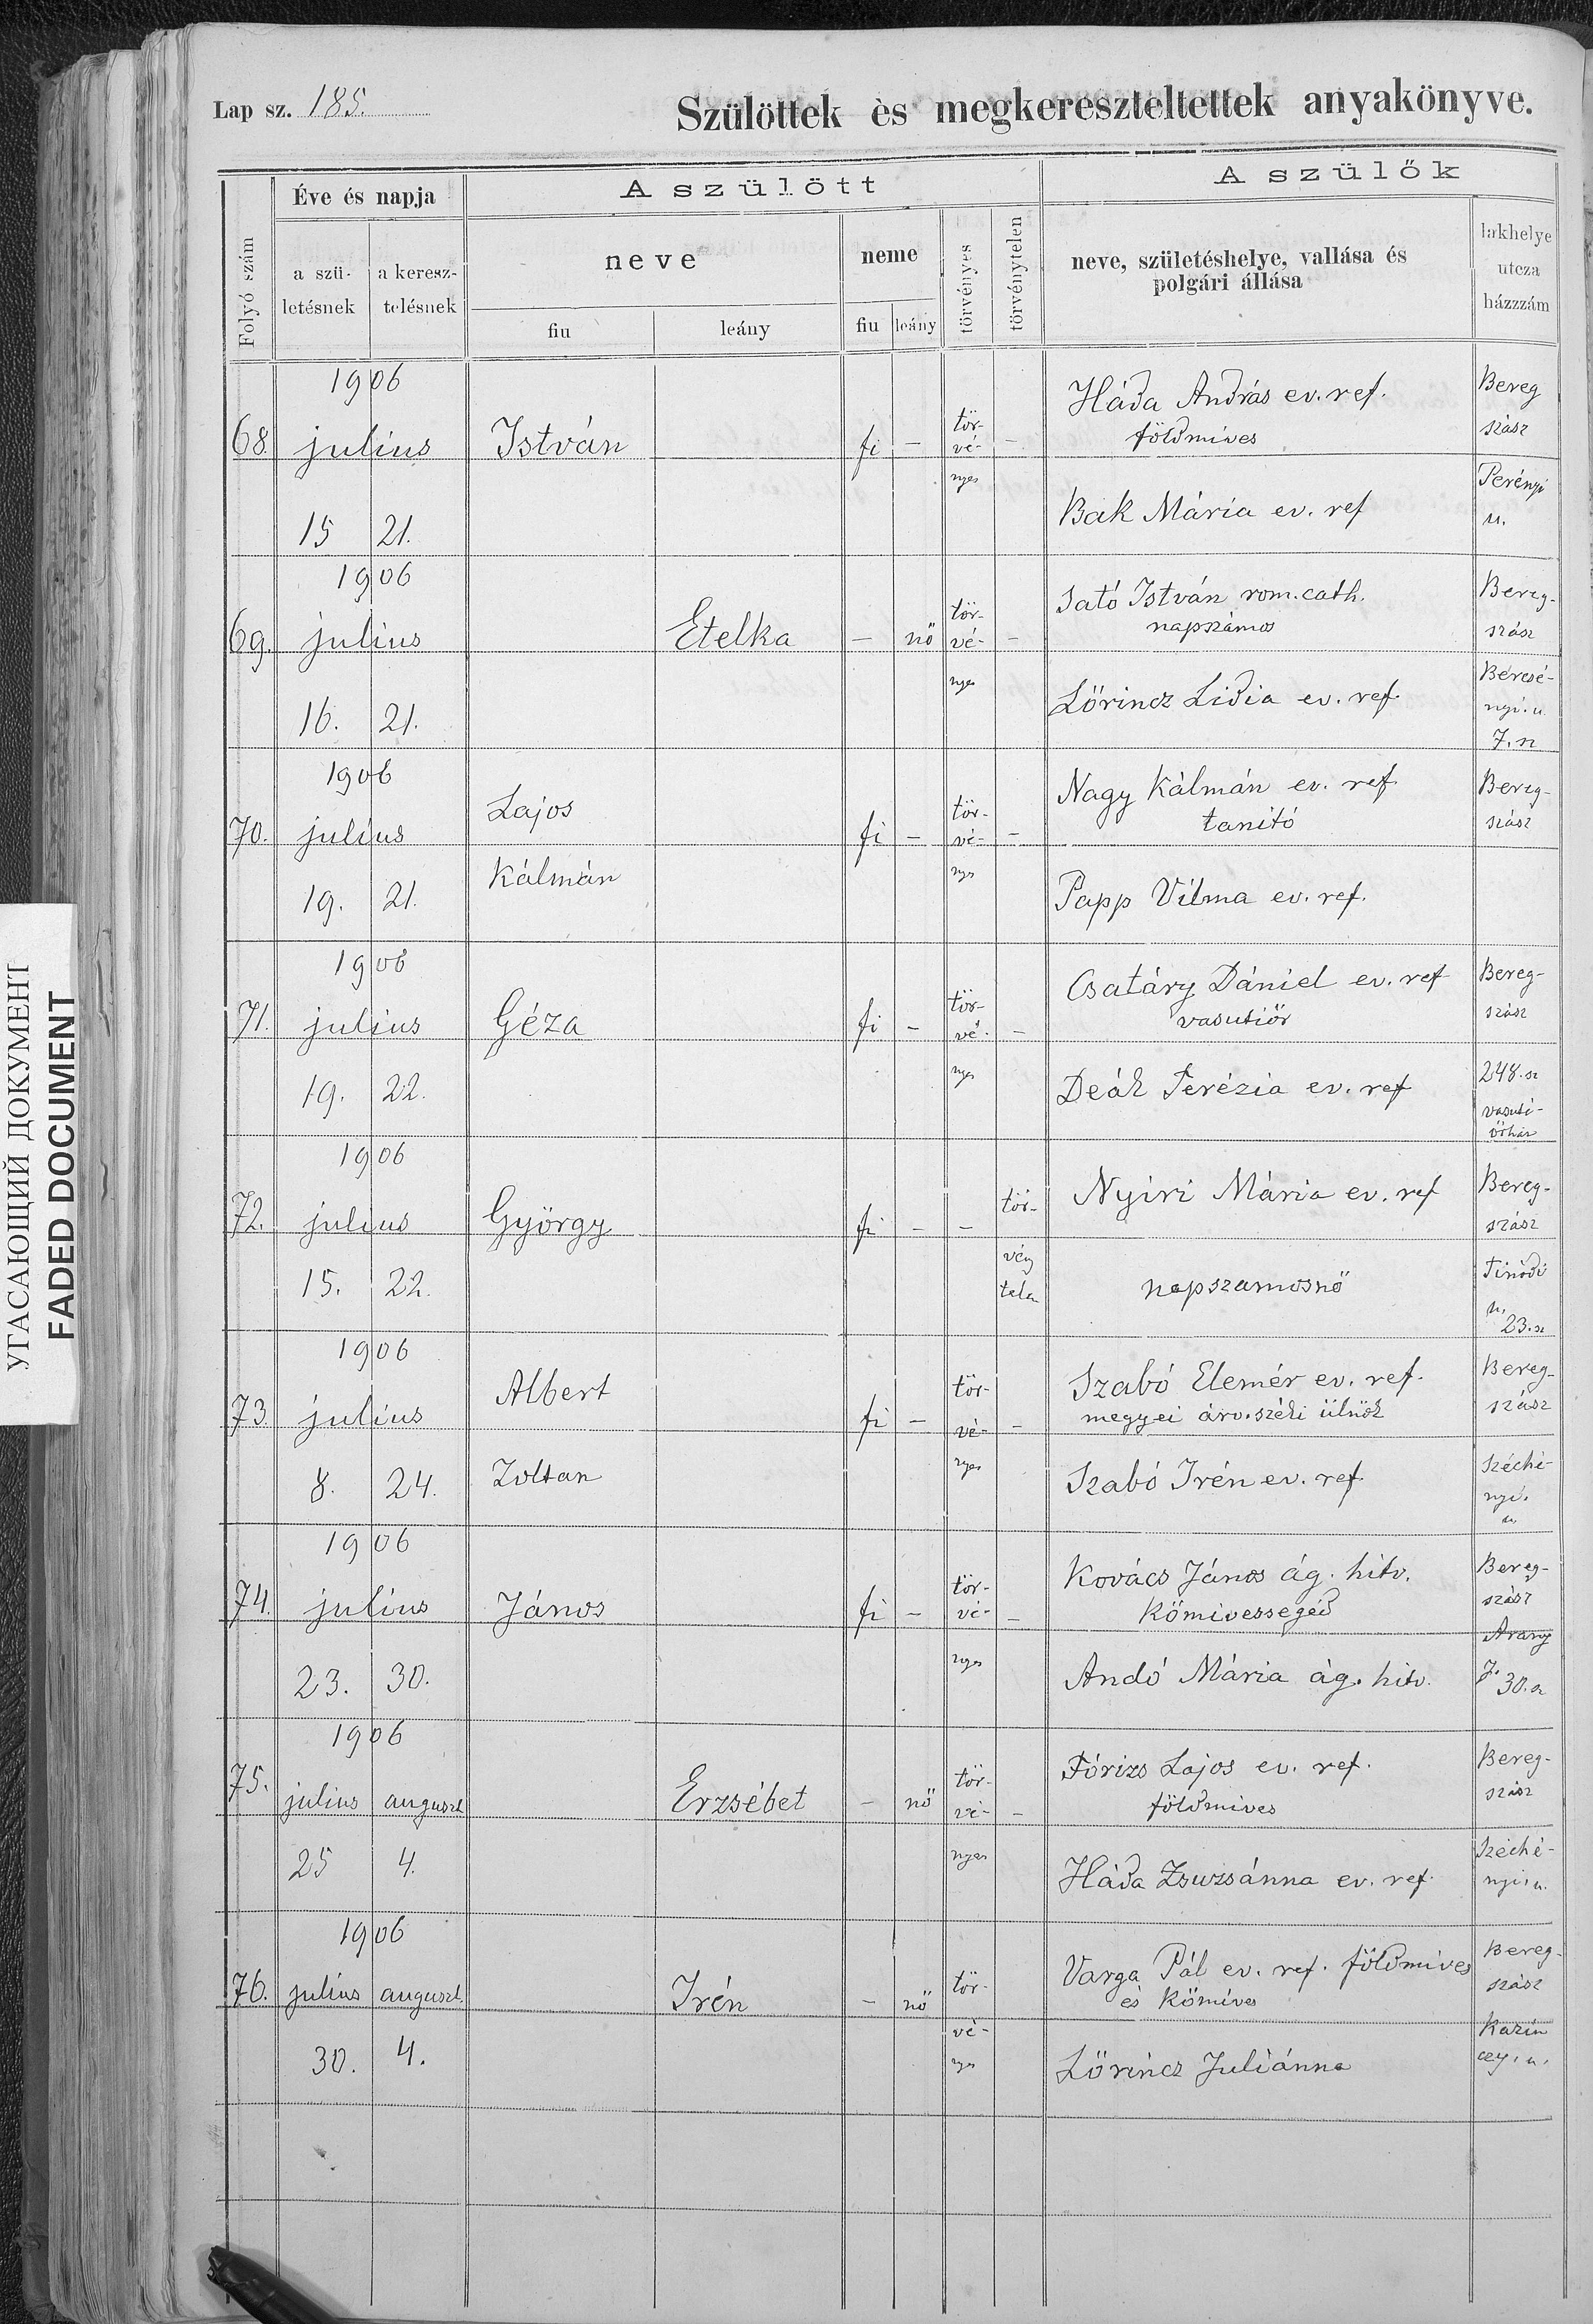 Lap sz. 185.
Szülöttek ès megkereszteltettek anyakönyve.
Folyó szám
Éve és napja
a szü-
letésnek
a keresz-
telésnek
A szülött
neve
fiu
leány
neme
fiu
leány
törvényes
törvénytelen
A szülők
neve, születéshelye, vallása és
polgári állása
lakhelye
utcza
házzzám
1906
68. julius István fi - tör-
vé-
nyes -
15 21.
Háda András ev. ref.
földmives
Bak Mária ev. ref
Bereg
szász
Perényi
u.
1906
69. julius Etelka - nő tör-
vé-
nyes -
16. 21.
Sató István rom. cath.
napszámos
Lőrincz Lidia ev. ref.
Bereg-
szász
Bercsé-
nyi. u.
7. sz
1906
70. julius Lajos
Kálmán
fi - tör-
vé-
nyes -
19. 21.
Nagy Kálmán ev. ref.
tanitó
Papp Vilma ev. ref.
Bereg-
szász
1906
71. julius Géza fi - tör-
vé-
nyes -
19. 22.
Csatáry Dániel ev. ref
vasutiőr
Deák Terézia ev. ref
Bereg-
szász
248. sz
vasuti-
őrház
1906
72. julius György fi - - tör-
vény
telen
15. 22.
Nyiri Mária ev. ref
napszamosnő
Bereg-
szász
Tinódi
u.
23. sz
1906
73. julius Albert
Zoltan
fi - tör-
vé-
nyes -
8. 24.
Szabó Elemér ev. ref.
megyei árv. széki ülnök
Szabó Irén ev. ref.
Bereg-
szász
Széché-
nyi.
u.
1906
74. julius János fi - tör-
vé-
nyes -
23. 30.
Kovács János ág. hitv.
Kőmivessegéd
Andó Mária ág. hitv.
Bereg-
szász
Arany
J.
30. sz
1906
75. julius auguszt. Erzsébet - nő tör-
vé-
nyes -
25 4.
Fórizs Lajos ev. ref.
földmives
Háda Zsuzsánna ev. ref.
Bereg-
szász
Széché-
nyi. u.
1906
76. julius auguszt. Irén - nő tör-
vé-
nyes
30. 4.
Varga Pál ev. ref. földmives
és Kőmives
Lőrincz Juliánna
Bereg-
szász
Kazin
czy. u.
УГАСАЮЩИЙ ДОКУМЕНТ
FADED DOCUMENT